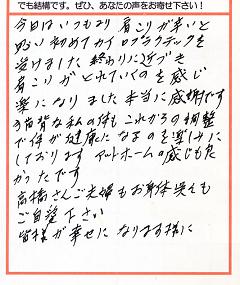 でも結構です。ぜひ、あなたの声をお寄せ下さい！
今日はいつもより肩こりが辛いと
思い初めてカイロプラクテックを
受けました 終わりに近づき
肩こりがとれていくのを感じ
楽になりました 本当に感謝です
猫背な私の体もこれからの調整
で体が健康になるのを楽しみに
しております アットホームの感じも良
かったです
高橋さんご夫婦もお身体
ご自愛下さい
皆様が幸せになります様に